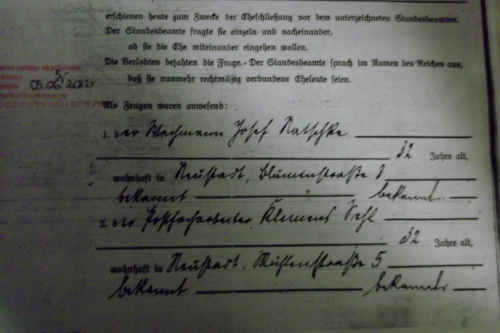 erschienen heute zum Zwecke der Eheschließung vor dem unterzeichneten Standesbeamten.
Der Standesbeamte fragte sie einzeln und nacheinander,
ob sie die Ehe miteinander eingehen wollen.
Die Verlobten bejahten die Frage. Der Standesbeamte sprach im Namen des Reiches aus,
daß sie nunmehr rechtmäßig verbundene Eheleute seien.
Als Zeugen waren anwesend:
1. der Wachmann Josef Ratschke
32 Jahre alt,
wohnhaft in Neustadt, Blumenstraße
bekannt bekannt
2. der Postfacharbeiter Klemens
32 Jahre alt,
wohnhaft in Neustadt, 5
bekannt bekannt